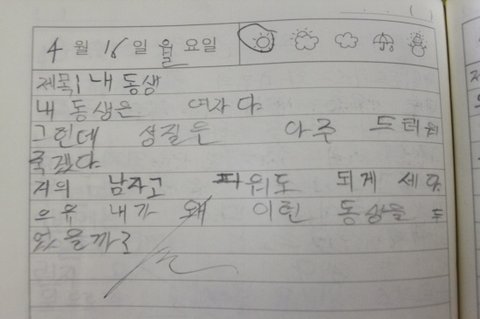 4월 16일 월요일
제목 내 동생
내 동생은 여자다
그런데 성질은 아주 드러워
죽겠다
거의 남자고 파워도 되게 세다
으유 내가 왜 이런 동상을 두
었을까?